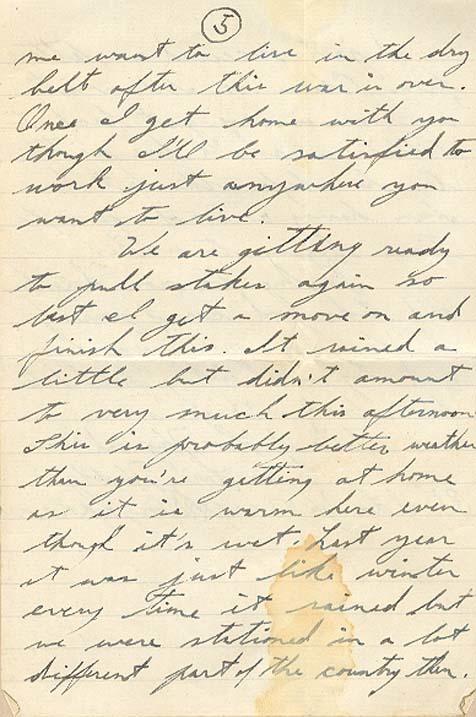 5
me want to live in the dry
belt after this war is over.
Once I get home with you
though I'll be satisfied to
work just anywhere you
want to live.
We are gitting ready
to pull stakes again so
best I get a move on and
finish this. It rained a
little but didn't amount
to very much this afternoon
This is probably better weather
than you're getting at home
as it is warm here even
though it's wet. Last year
it was just like winter
every time it rained but
we were stationed in a lot
different part of the country then.